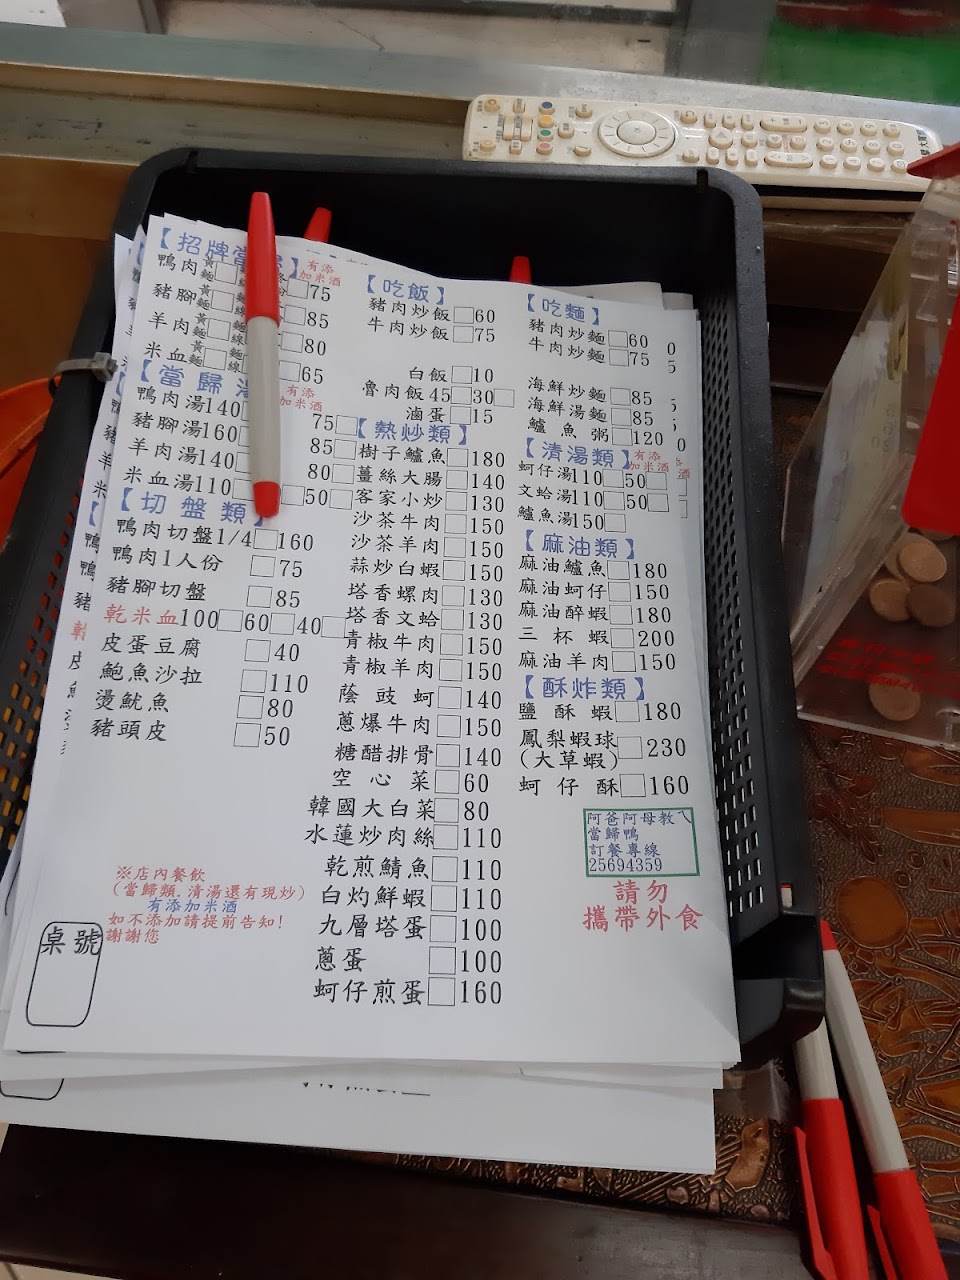 【招牌當
有添
加米酒
鴨肉 黃麵 75
豬腳 黃麵 麵線 85
羊肉 黃麵 麵線 80
米血 黃麵 麵線 65
【當歸
有添
加米酒
鴨肉湯140 75
豬腳湯160 85
羊肉湯140 80
米血湯110 50
【切盤類】
鴨肉切盤1/4 160
鴨肉1人份 75
豬腳切盤 85
乾米血100 60 40
皮蛋豆腐 40
鮑魚沙拉 110
燙魷魚 80
豬頭皮 50
※店內餐飲
(當歸類.清湯還有現炒)
有添加米酒
如不添加請提前告知!
謝謝您
桌號
【吃飯】
豬肉炒飯 60
牛肉炒飯 75
白飯 10
魯肉飯 45 30
滷蛋 15
【熱炒類】
樹子鱸魚 180
薑絲大腸 140
客家小炒 130
沙茶牛肉 150
沙茶羊肉 150
蒜炒白蝦 150
塔香螺肉 130
塔香文蛤 130
青椒牛肉 150
青椒羊肉 150
蔭豉蚵 140
蔥爆牛肉 150
糖醋排骨 140
空心菜 60
韓國大白菜 80
水蓮炒肉絲 110
乾煎鯖魚 110
白灼鮮蝦 110
九層塔蛋 100
蔥蛋 100
蚵仔煎蛋 160
【吃麵】
豬肉炒麵 60
牛肉炒麵 75
海鮮炒麵 85
海鮮湯麵 85
鱸魚粥 120
【清湯類】
有添
加米酒
蚵仔湯110 50
文蛤湯110 50
鱸魚湯150
【麻油類】
麻油鱸魚 180
麻油蚵仔 150
麻油醉蝦 180
三杯蝦 200
麻油羊肉 150
【酥炸類】
鹽酥蝦 180
鳳梨蝦球 230
(大草蝦)
蚵仔酥 160
阿爸阿母教ㄟ
當歸鴨
訂餐專線
25694359
請勿
攜帶外食